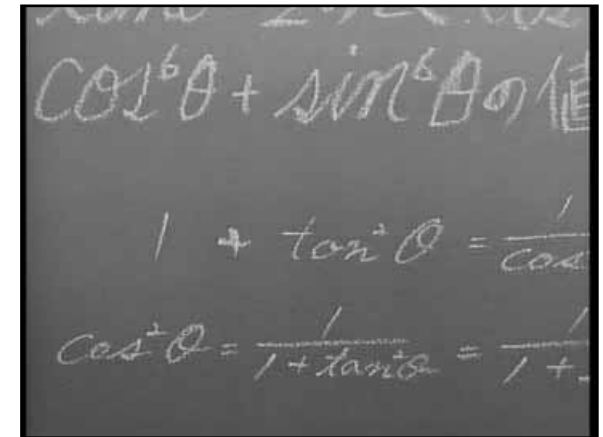 cos⁶θ + sin⁶θの値
1 + tan²θ = 1/cos
cos²θ = 1/(1+tan²θ) = 1/(1+